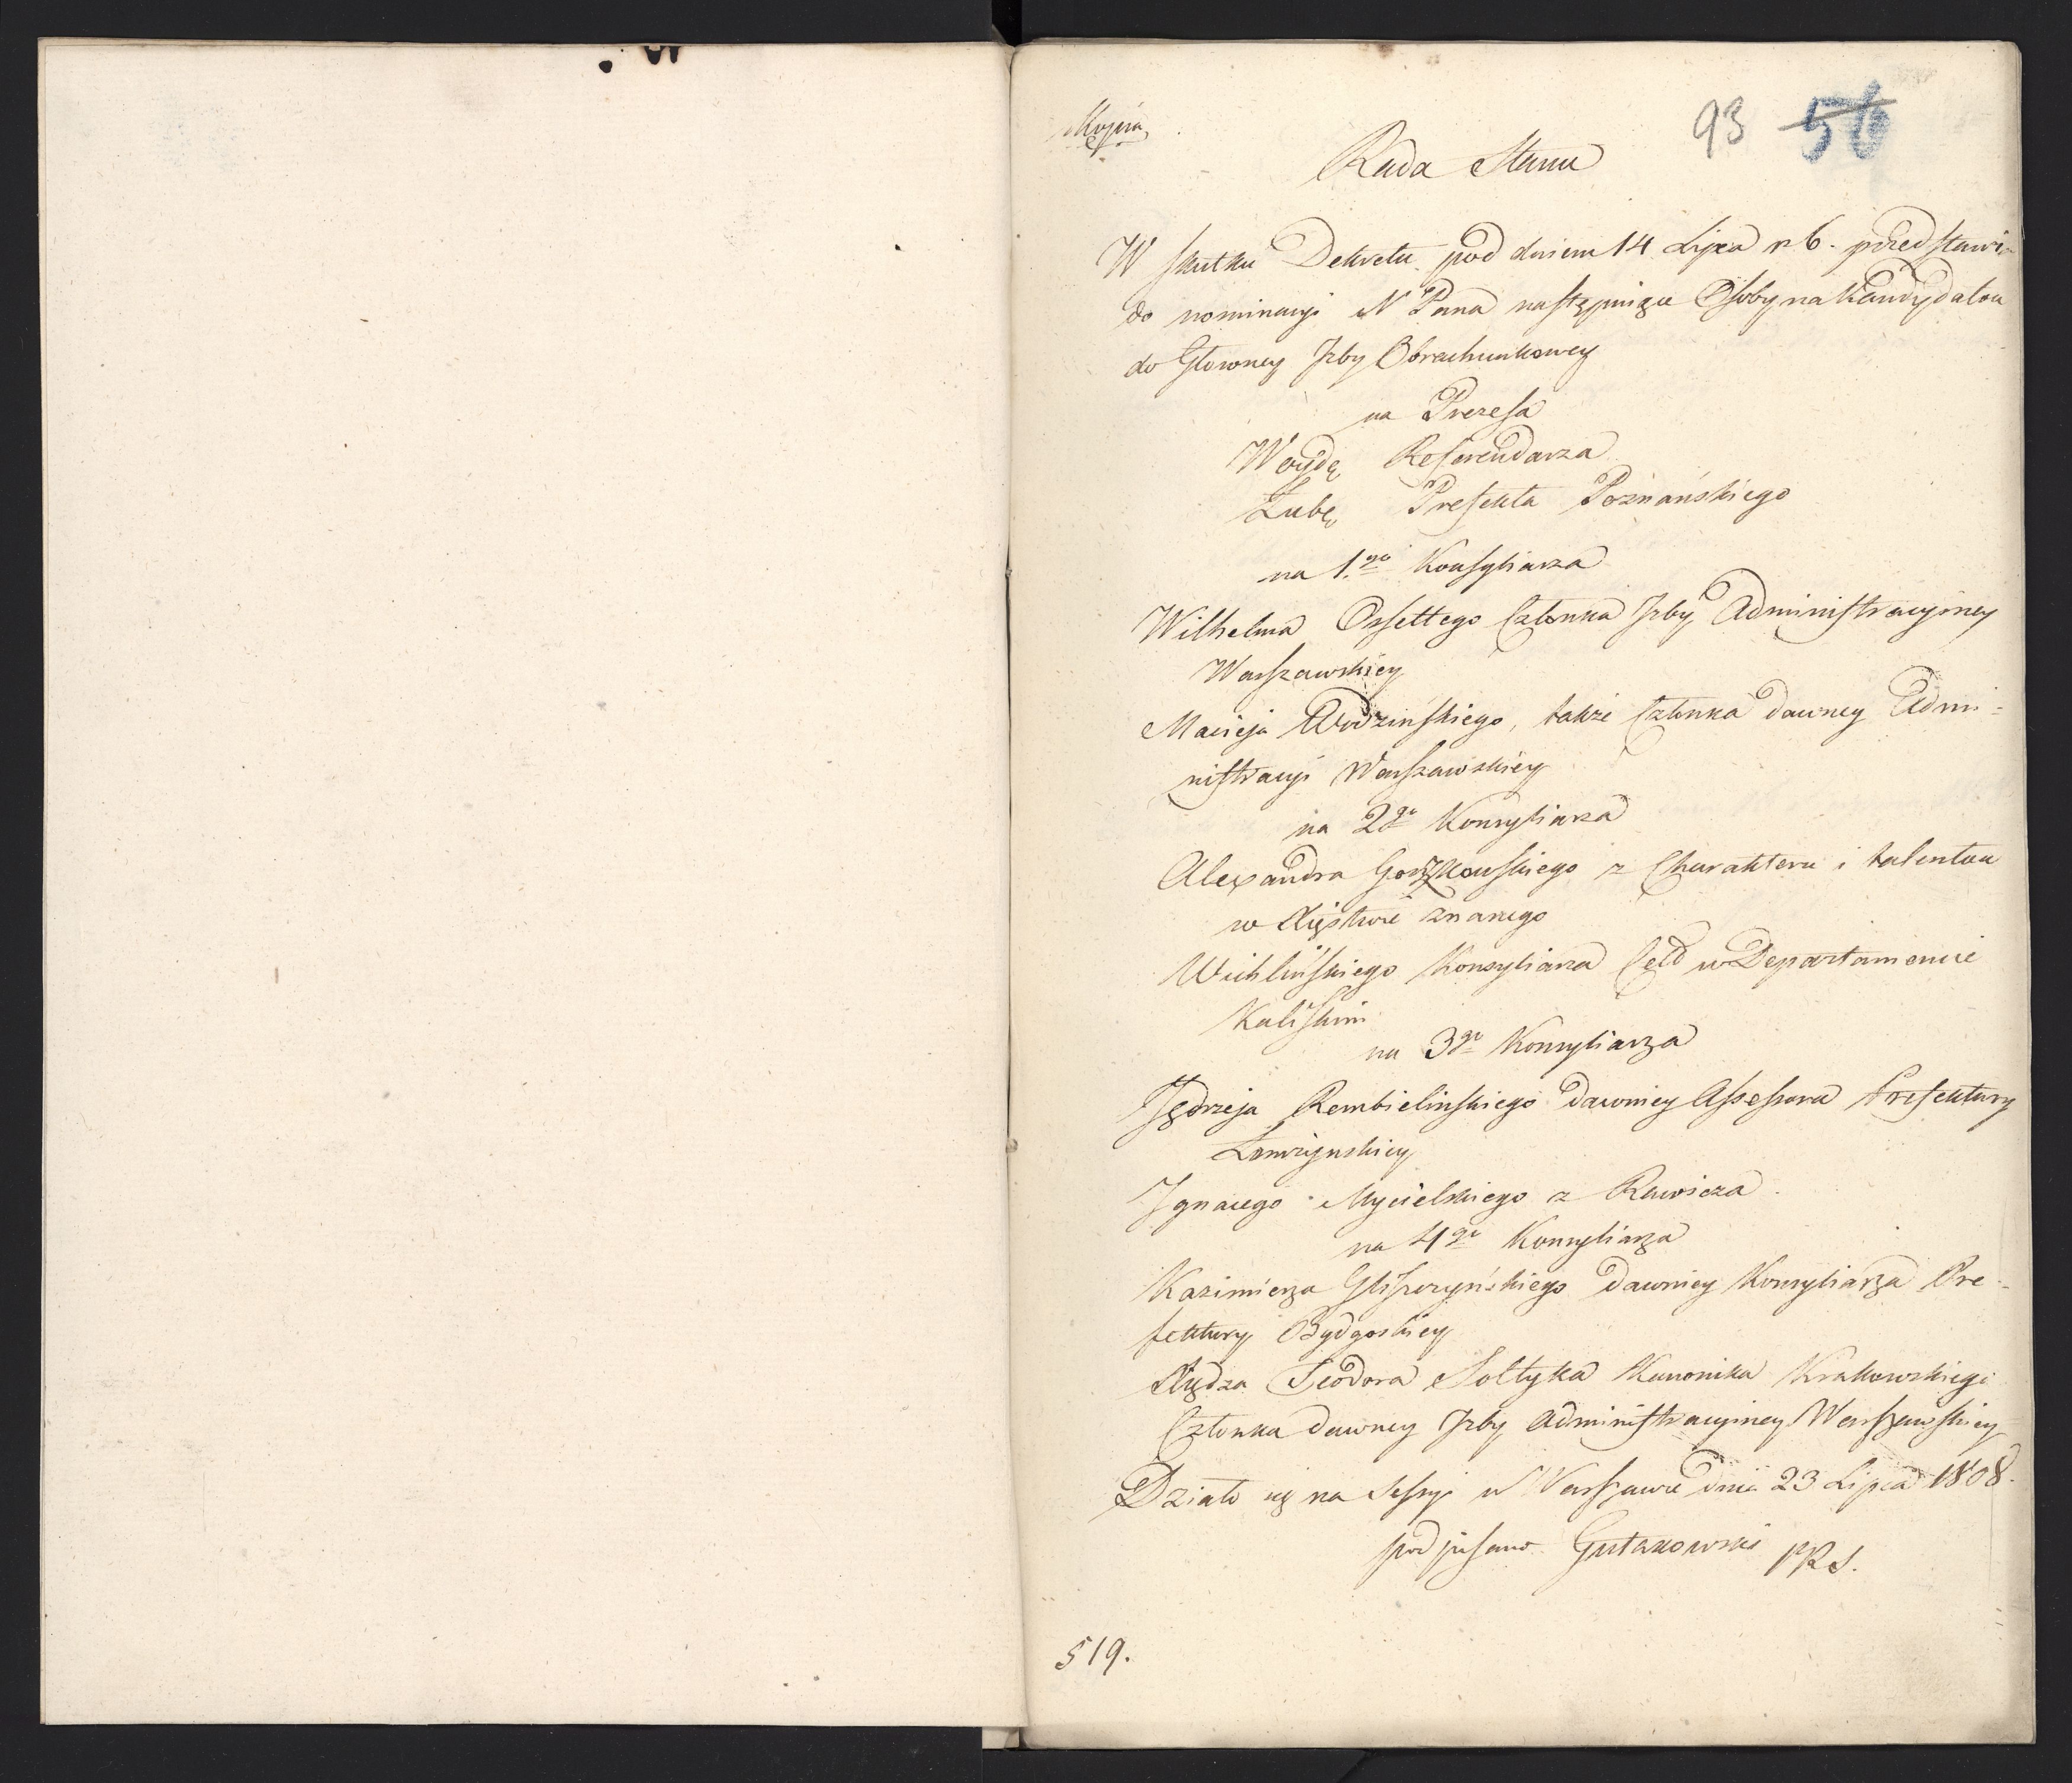 Kopia
93 56
Rada Stanu
W skutku Dekretu pod dniem 14 Lipca r b. przedstawia
do nominacyi N Pana następuiące Osoby na Kandydatow
do Głowney Izby Obrachunkowey
na Prezesa
Woydę Referendarza
Łubę Prefekta Poznańskiego
na 1.go Konsyliarza
Wilhelma Orsettego Członka Izby Administracyiney
Warszawskiey
Macieja Wodzinskiego, także Członka dawney Admi-
nistracyi Warszawskiey
na 2go Konsyliarza
Alexandra Gorzkowskiego z Charakteru i talentou
w Xięstwie znanego
Wichlińskiego Konsyliarza Ceł w Departamencie
Kaliskim
na 3go Konsyliarza
Jędrzeja Rembielinskiego dawniey Assessora Prefektury
Łomżynskiey
Ignacego Mycielskiego z Rawicza.
na 4go Konsyliarza
Kazimierza Gliszczyńskiego dawniey Konsyliarza Pre-
fektury Bydgoskiey
Xiędza Teodora Sołtyka Kanonika Krakowskiego
Członka dawney Izby Administracyiney Warszawskiey
Działo się na Sessyi w Warszawie dnia 23 Lipca 1808.
podpisano Gutakowski PRS.
519.